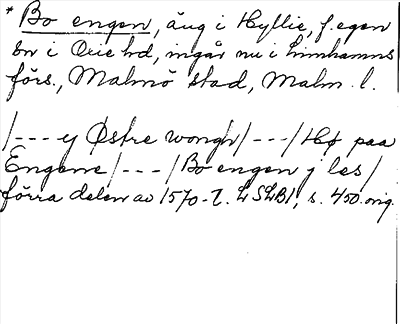 * Bo engen, äng i Hyllie, f. egen
by i Oxie hd, ingår nu i Limhamns
förs., Malmö stad, Malm. l.
/---y Østre wongh/---/Hø paa
Engene/---/Bo engen j les/
förra delen av 1570-t. LSLB1, s. 450. orig.